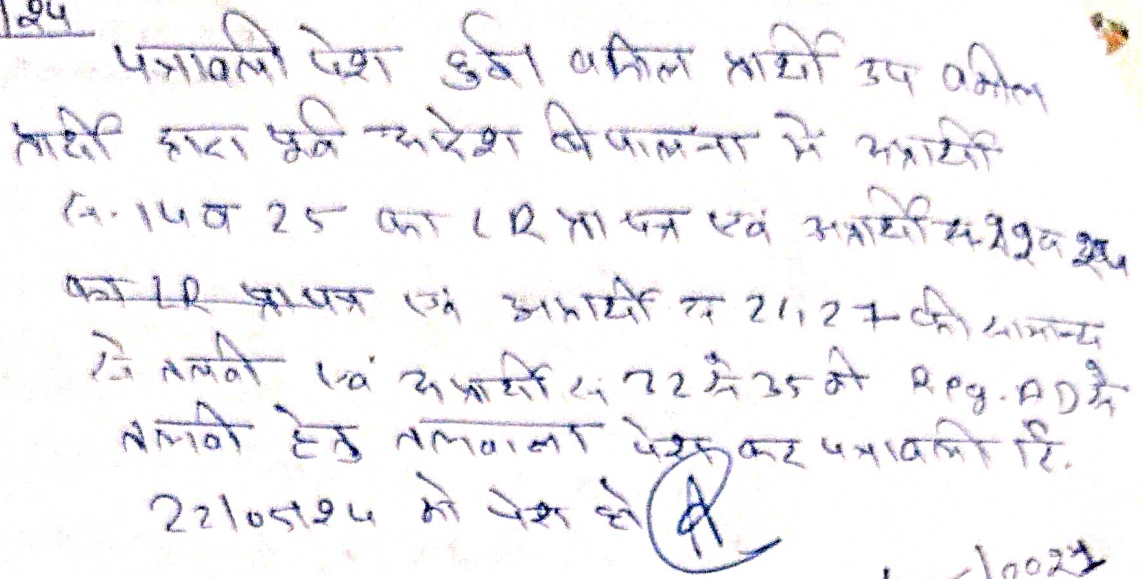 पत्रावली पेश हुई। वकील प्रार्थी उप वकील
प्रार्थी द्वारा पूर्व आदेश की पालना में अप्रार्थी
व 25 का LR प्रा पत्र एवं अप्रार्थी सं.
का LR प्रा पत्र एवं अप्रार्थी सं 21, 27 की सामान्य
से तलबी एवं अप्रार्थी सं 22 से 35 को Reg. AD से
तलबी हेतु तलवाना पेश कर पत्रावली दि.
22/05/24 को पेश हो